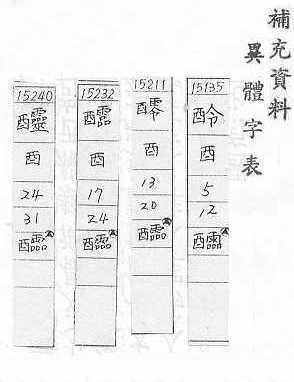 補充資料
異體字表
15135
酉
5
12
醽
15211
酉
13
20
醽
15232
醽
酉
17
24
醽
15240
酉
24
31
醽